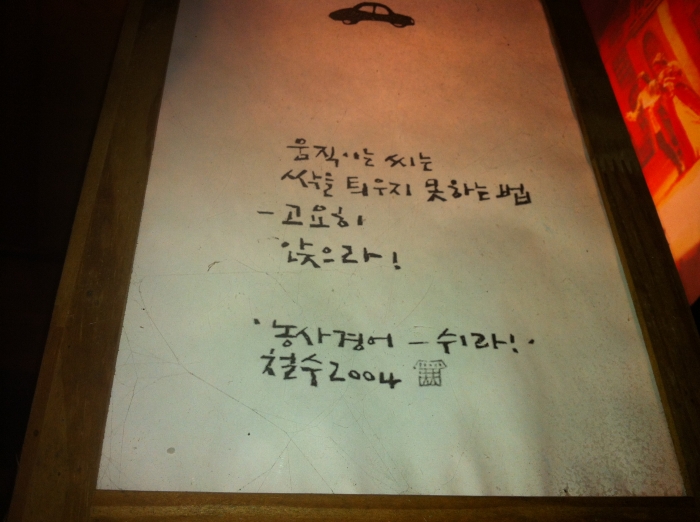 움직이는 씨는
싹을 틔우지 못하는 법
- 고요히
앉으라!
'농사경어 - 쉬라!'
철수2004